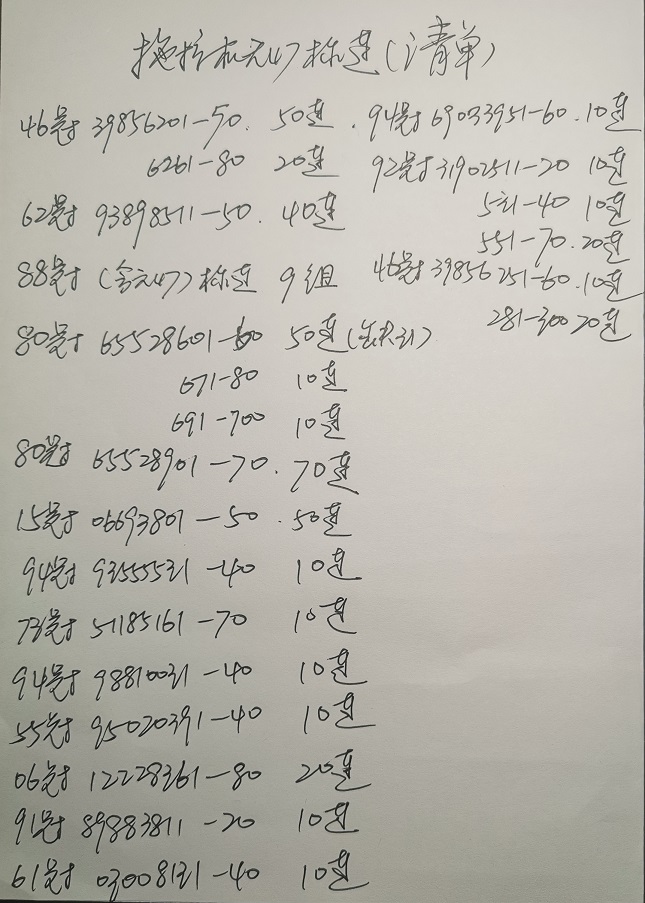 拖拉机无47标连(清单)
46冠 39856201-50. 50连.
6261-80 20连
62冠 93898511-50. 40连
88冠 (含无47)标连 9组
80冠 65528601-60 50连(缺31)
671-80 10连
691-700 10连
80冠 65528901-70. 70连
15冠 06693801-50. 50连
94冠 93555531-40 10连
73冠 51185161-70 10连
94冠 98810031-40 10连
55冠 95020391-40 10连
06冠 12228361-80 20连
91冠 89883811-20 10连
61冠 03008131-40 10连
94冠 69033951-60. 10连
92冠 31902511-20 10连
531-40 10连
551-70. 20连
46冠 39856251-60. 10连
281-300 20连